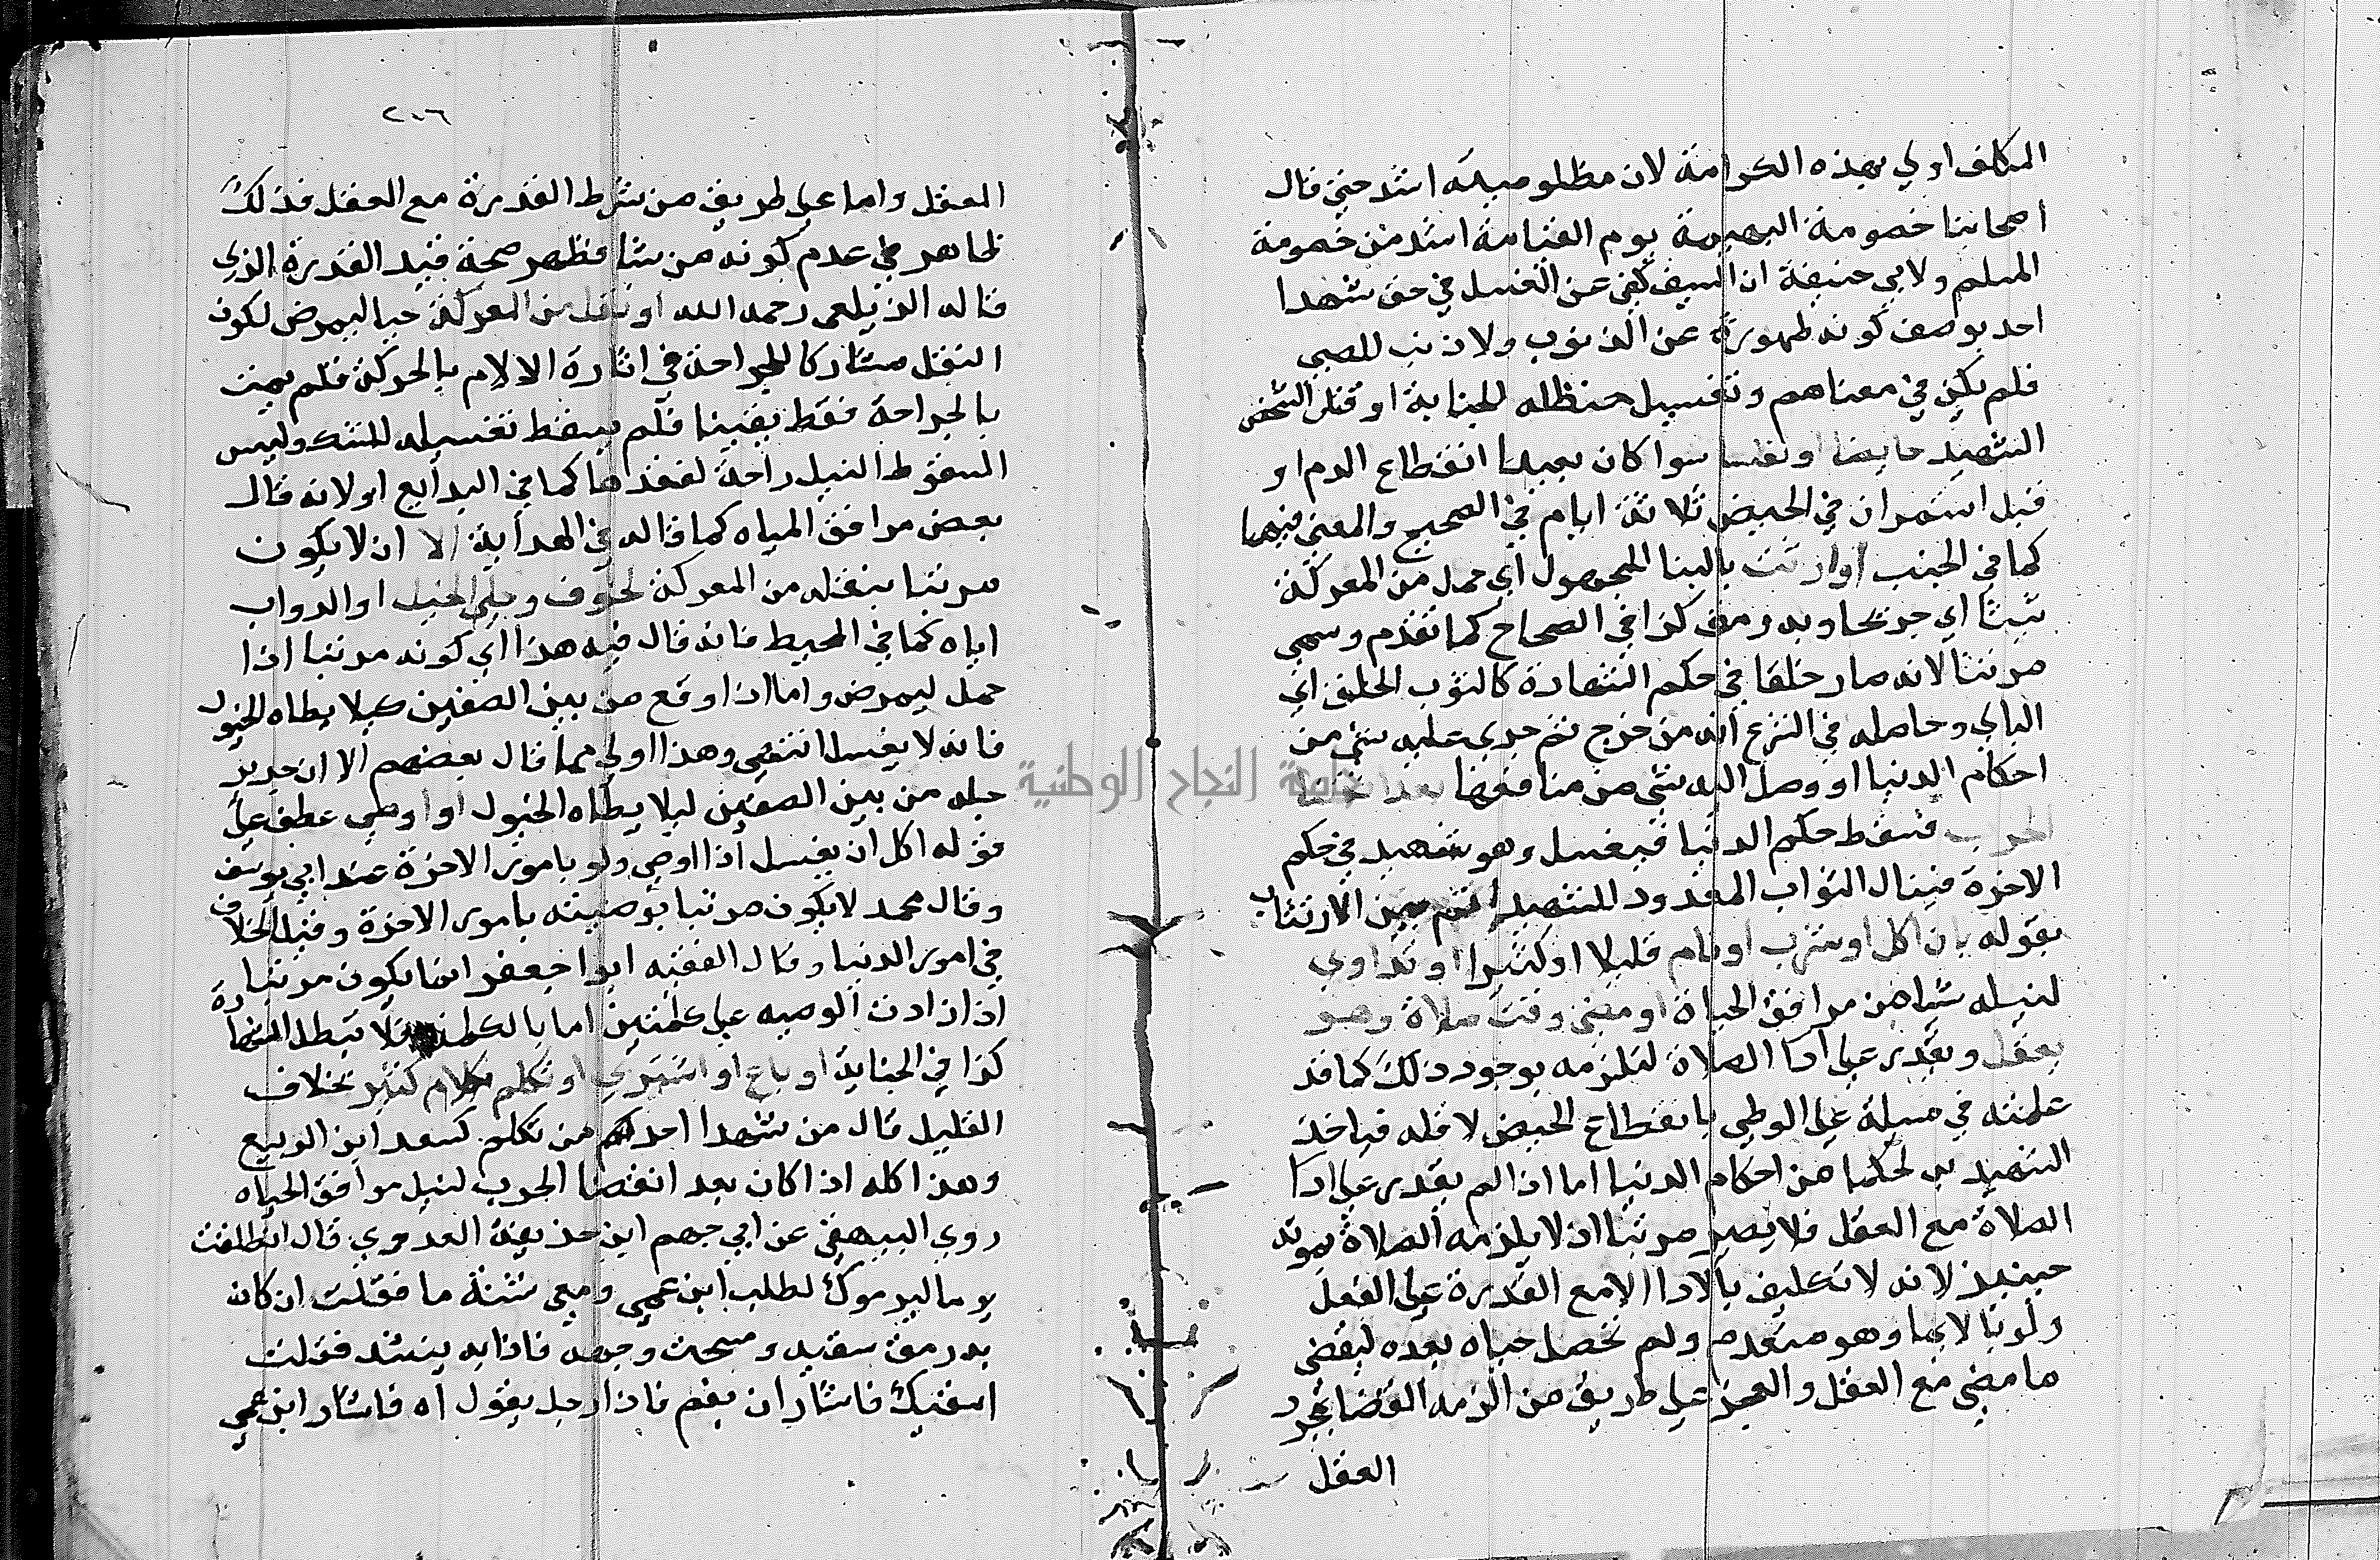 المكلف اولي بهذه الكرامة لان مظلوميته اشد حتي قال
اصحابنا خصومة البهيمة يوم القيامة اشد من خصومة
المسلم ولابي حنيفة ان السيف كفي عن الغسل في حق شهدا
احد بوصف كونه طهورة عن الذنوب ولا ذنب للصبي
فلم يكن في معناهم وتغسيل حنظله للجنابة او قتل الشخص
الشهيد حايضا او نفسا سوا كان بعد انقطاع الدم او
قبل استمران في الحيض ثلاثة ايام في الصحيح والمعني فيهما
كما في الجنب او ارتث بالبنا للمجهول اي حمل من المعركة
رثيثا اي جريحا وبه رمق كذا في الصحاح كما تقدم وسمي
مرتثا لانه صار خلقا في حكم الشهادة كالثوب الخلق اي
البالي وحاصله في الشرع انه من خرج ثم جري عليه شي من
احكام الدنيا او وصل اليه شي من منافعها بعد انقضا
الحرب فسقط حكم الدنيا فيغسل وهو شهيد في حكم
الاخرة فينال الثواب الموعود للشهيد ثم بين الارتثاث
بقوله بان اكل او شرب او نام قليلا او كثيرا او تداوي
لنيله شيا من مرافق الحياة او مضي وقت صلاة وهو
يعقل ويقدر علي ادا الصلاة لتلزمه بوجود ذلك كما قد
علمته في مسيلة علي الوطي بانقطاع الحيض لاقله فياخذ
الشهيد به لحكما من احكام الدنيا اما اذا لم يقدر علي ادا
الصلاة مع العقل فلا يصير مرتثا اذ لا يلزمه الصلاة بموته
حينيذ لانه لا تكليف بالادا الا مع القدرة علي الفعل
ولو بالايما وهو منعدم ولم تحصل حياه بعده ليقضي
ما مضي مع العقل والعجز علي طريق من الزمه القضا بمجرد
العقل
٢٠٦
العقل واما علي طريق من شرط القدرة مع العقل فذلك
ظاهر في عدم كونه مرتثا فظهر صحة قيد القدرة الذي
قاله الزيلعي رحمه الله او نقل من المعركة حيا ليمرض لكون
النقل مشاركا للجراحة في اثارة الالام بالحركة فلم يمت
بالجراحة فقط يقينا فلم يسقط تغسيله للشك وليس
السقوط لنيل راحة لفقدها كما في البدايع او لانه قال
بعض مرافق الحياه كما قاله في الهداية الا ان لا يكون
مرتثا بنقله من المعركة لخوف وطي الخيل او الدواب
اياه كما في المحيط فانه قال فيه هذا اي كونه مرتثا اذا
حمل ليمرض واما اذا وقع من بين الصفين كيلا يطاه الخيول
فانه لا يغسل انتهي وهذا اولي مما قال بعضهم الا ان جريد
حمله من بين الصفين ليلا يطاه الخيول او اوصي عطف علي
قوله اكل ان يغسل اذا اوصي ولو بامور الاخرة عند ابي يوسف
وقال محمد لا يكون مرتثا بوصيته بامور الاخرة وقيل الخلاف
في امور الدنيا وقال الفقيه ابوا جعفر انما يكون مرتثا
اذا زادت الوصيه علي كلمتين اما بالكلمة فلا تبطل الشهادة
كذا في الجناية او باع او اشتري او تكلم بكلام كثير بخلاف
القليل قال من شهدا احد من تكلم كسعد ابن الربيع
وهذا كله اذا كان بعد انقضا الحرب لنيل مرافق الحياه
روي البيهقي عن ابي جهم ابن حذيفة العدوي قال انطلقت
يوم اليرموك لطلب ابن عمي ومعي شنة ما فقلت ان كان
به رمق سقيه ومسحت وجهه فاذا به ينشد فقلت
اسقيك فاشار ان نعم فاذا رجل يقول اه فاشار ابن عمي
جامعة النجاح الوطنية